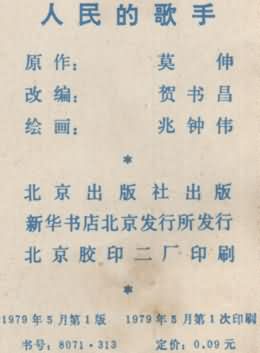 人民的歌手
原作： 莫伸
改编： 贺书昌
绘画： 兆钟伟
*
北京出版社出版
新华书店北京发行所发行
北京胶印二厂印刷
*
1979年5月第1版 1979年5月第1次印刷
书号：8071·313 定价：0.09元